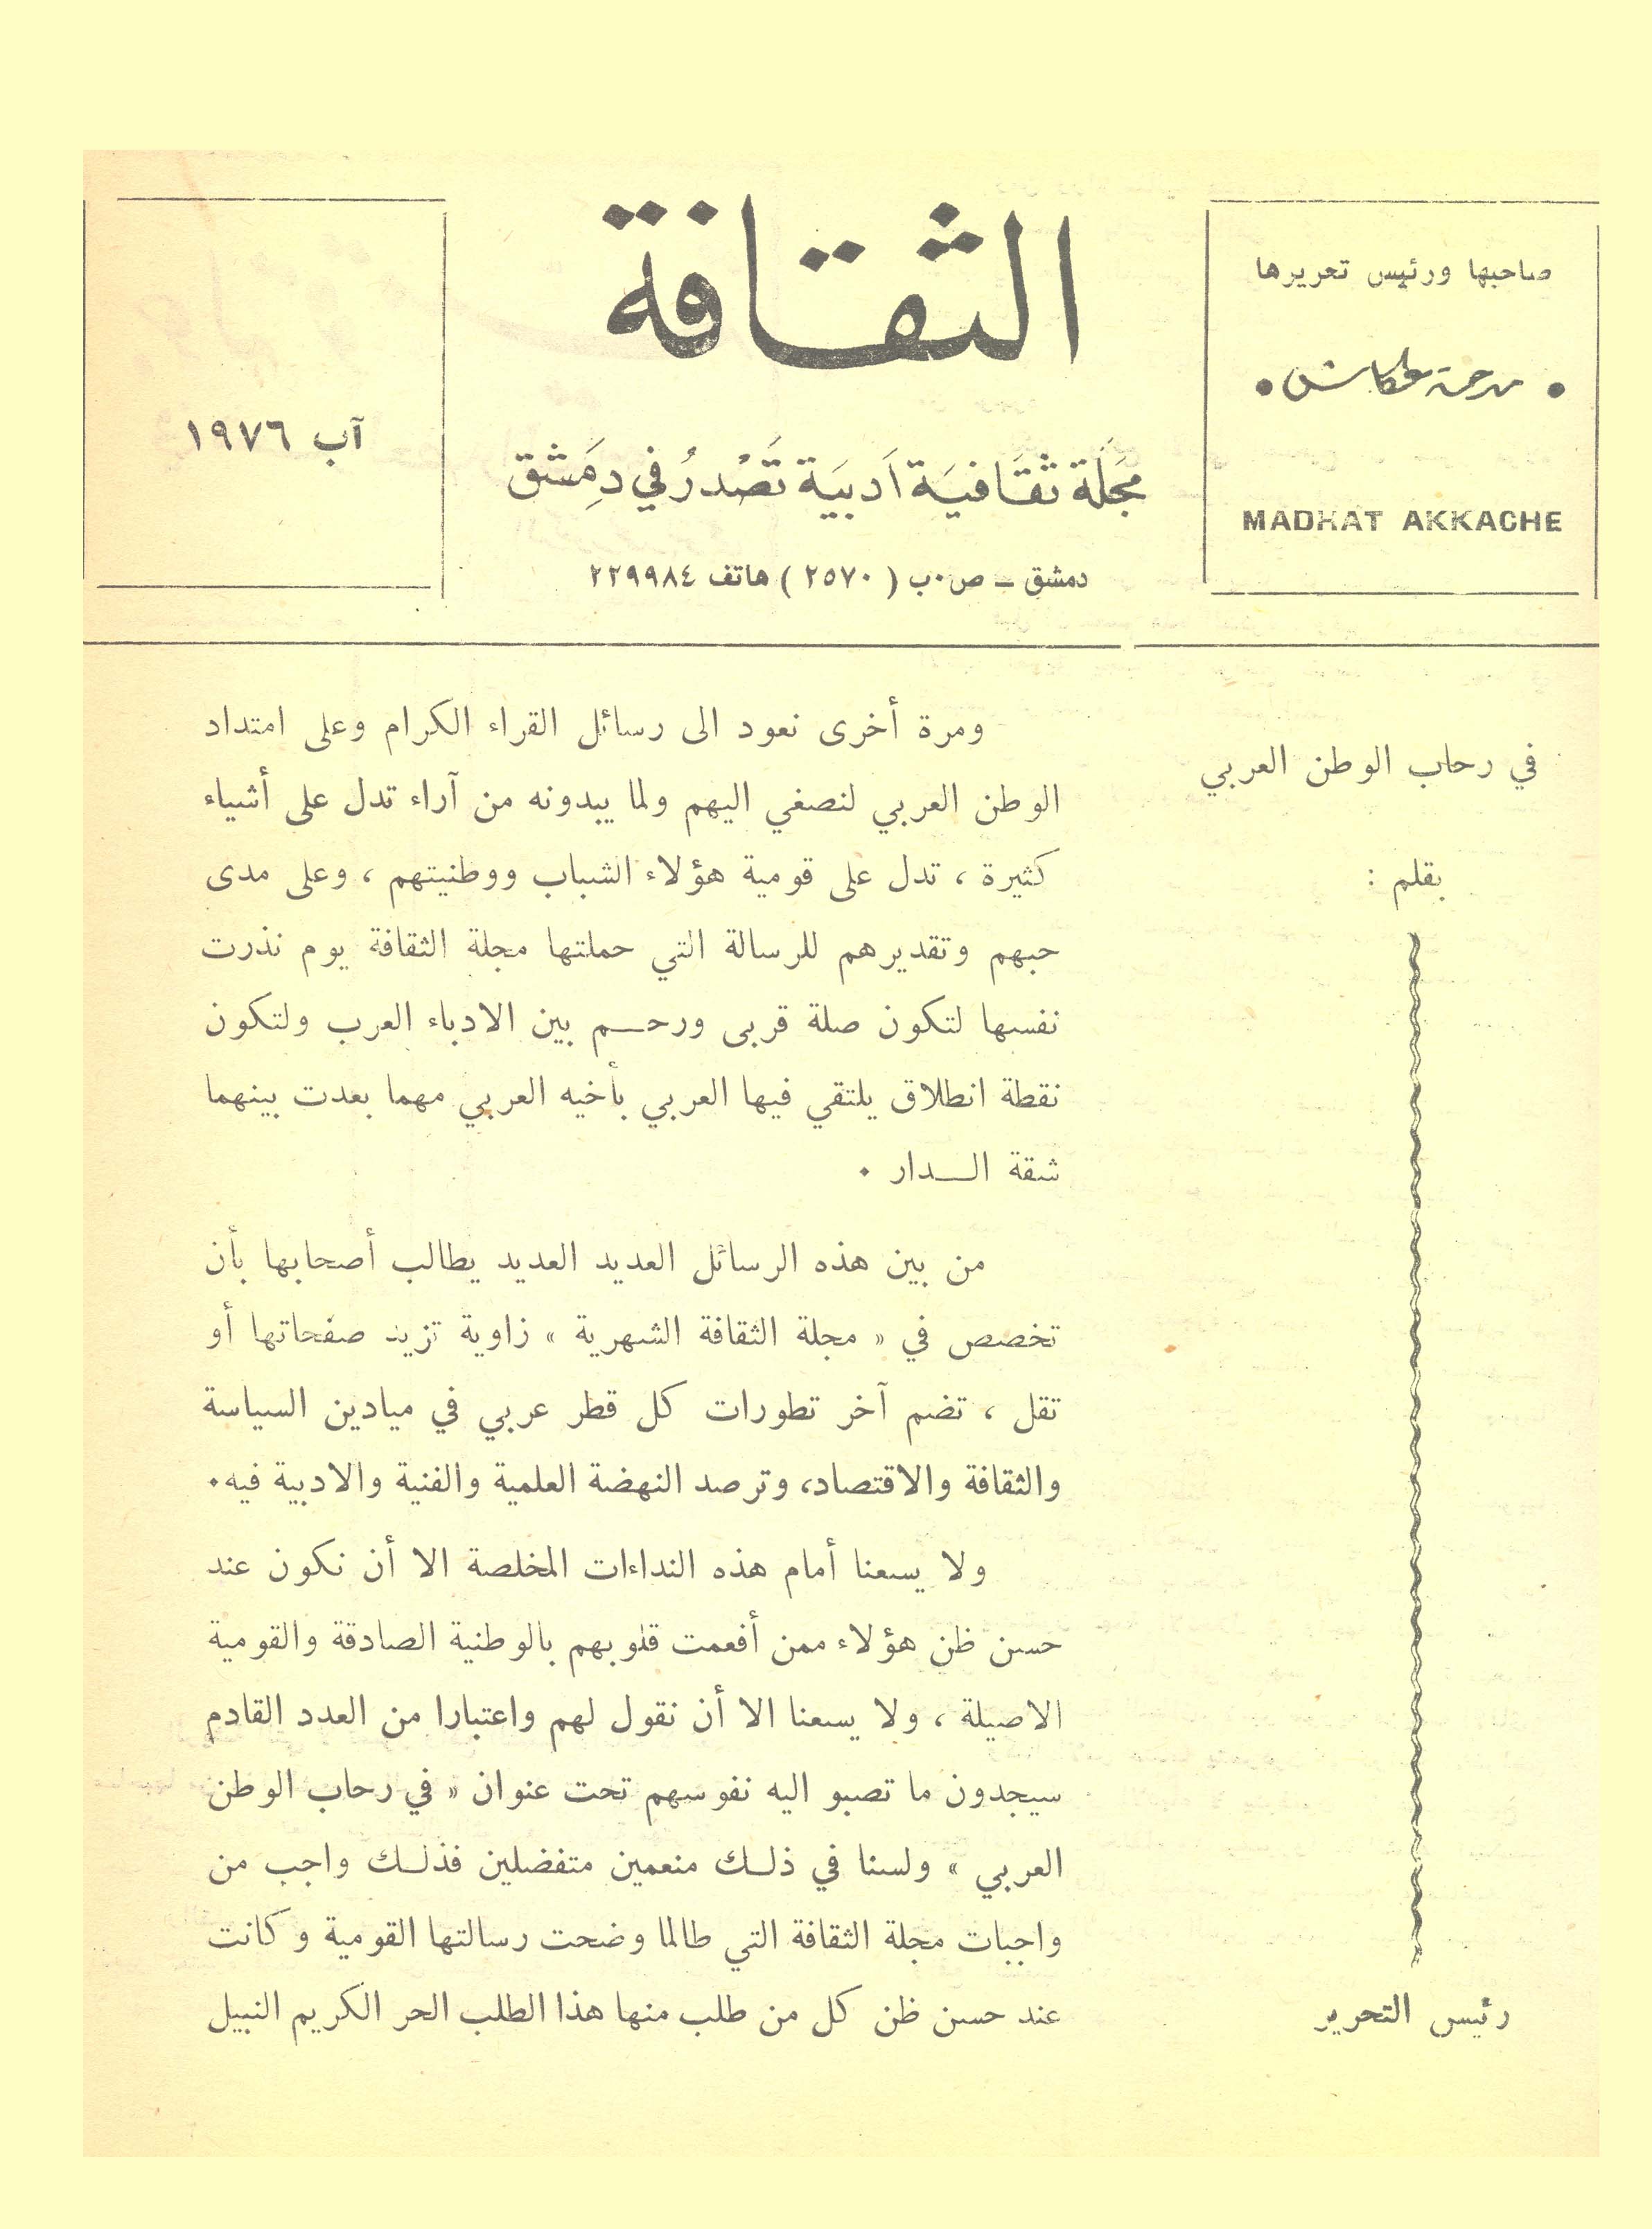 صاحبها ورئيس تحريرها
• مدحة عكاش •
MADHAT AKKACHE
الثقافة
مَجَلَة ثقَافيَة اَدبيَة تَصْدرُ في دِمَشق
دمشق ــ ص٠ب ( ٢٥٧٠ ) هاتف ٢٢٩٩٨٤
آب ١٩٧٦
في رحاب الوطن العربي
بقلم :
رئيس التحرير
ومرة أخرى نعود الى رسائل القراء الكرام وعلى امتداد
الوطن العربي لنصغي اليهم ولما يبدونه من آراء تدل على أشياء
كثيرة ، تدل على قومية هؤلاء الشباب ووطنيتهم ، وعلى مدى
حبهم وتقديرهم للرسالة التي حملتها مجلة الثقافة يوم نذرت
نفسها لتكون صلة قربى ورحــم بين الادباء العرب ولتكون
نقطة انطلاق يلتقي فيها العربي بأخيه العربي مهما بعدت بينهما
شقة الــدار ٠
من بين هذه الرسائل العديد العديد يطالب أصحابها بأن
تخصص في « مجلة الثقافة الشهرية » زاوية تزيد صفحاتها أو
تقل ، تضم آخر تطورات كل قطر عربي في ميادين السياسة
والثقافة والاقتصاد، وترصد النهضة العلمية والفنية والادبية فيه٠
ولا يسعنا أمام هذه النداءات المخلصة الا أن نكون عند
حسن ظن هؤلاء ممن أفعمت قلوبهم بالوطنية الصادقة والقومية
الاصيلة ، ولا يسعنا الا أن نقول لهم واعتبارا من العدد القادم
سيجدون ما تصبو اليه نفوسهم تحت عنوان « في رحاب الوطن
العربي » ولسنا في ذلــك منعمين متفضلين فذلــك واجب من
واجبات مجلة الثقافة التي طالما وضحت رسالتها القومية وكانت
عند حسن ظن كل من طلب منها هذا الطلب الحر الكريم النبيل